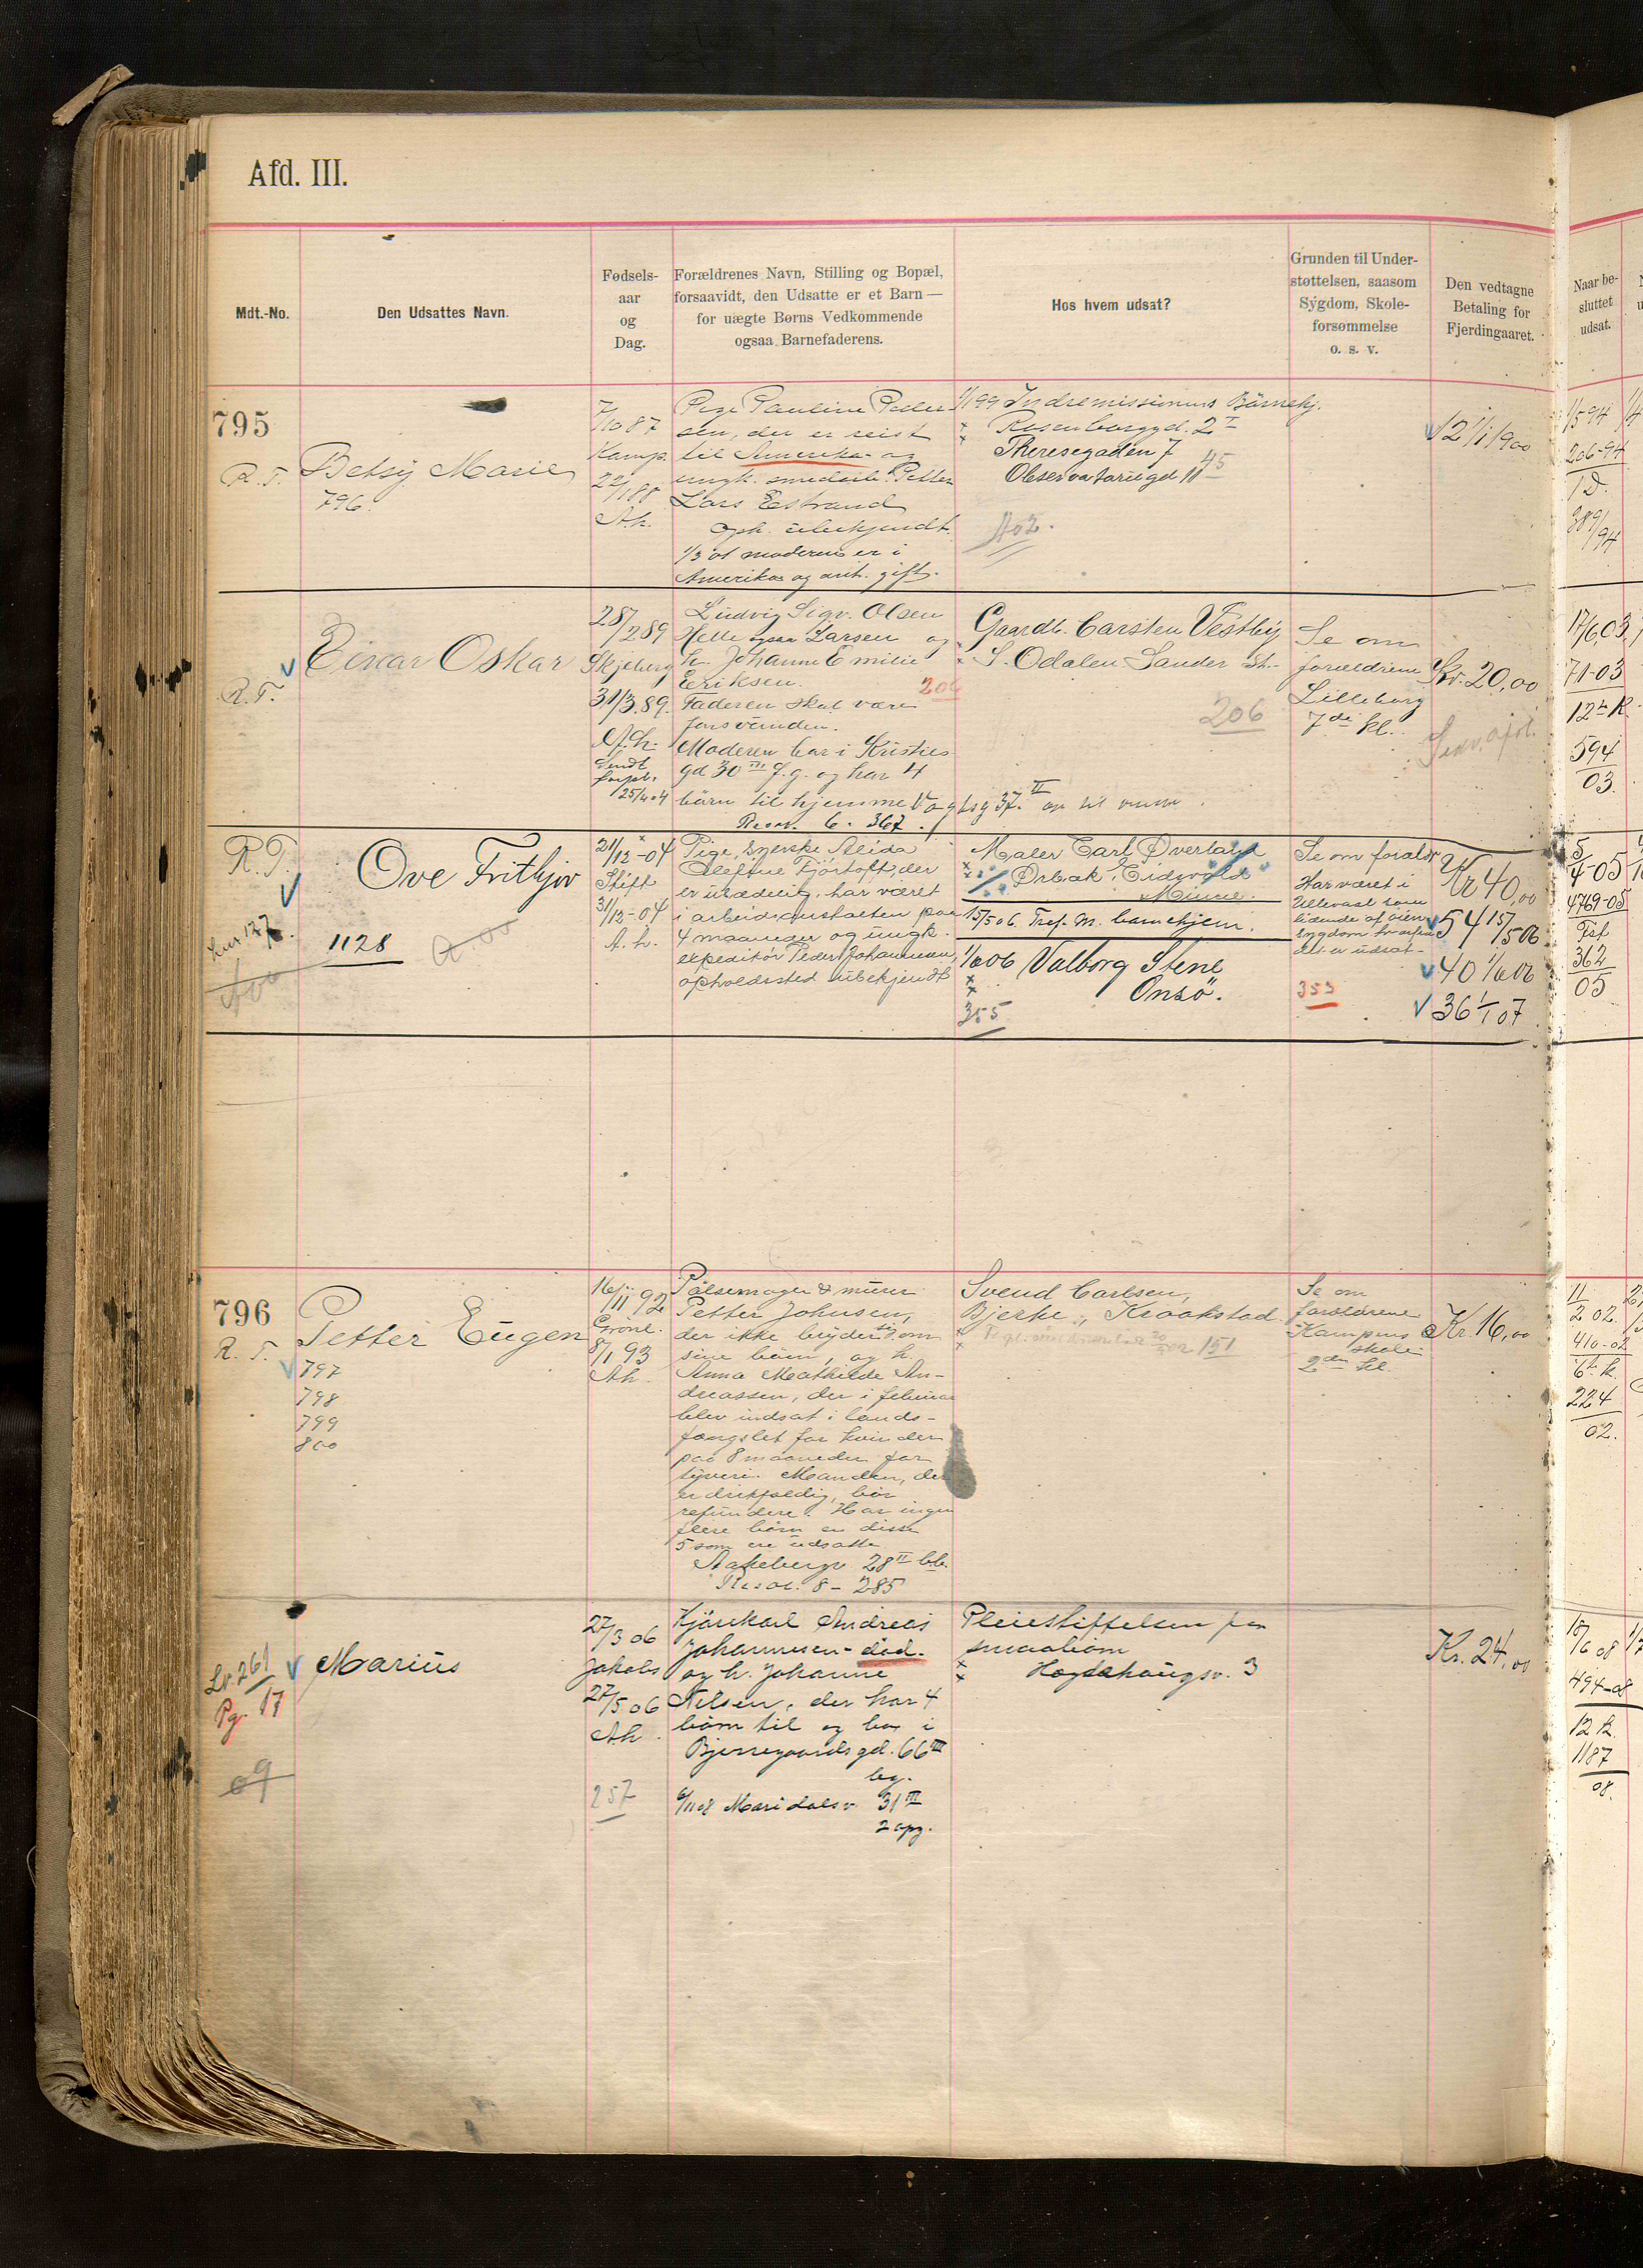 Afd. III.
Mdt.-No.
Den Udsattes Navn.
Fødsels-
aar
og
Dag.
Forældrenes Navn, Stilling og Bopæl,
forsaavidt, den Udsatte er et Barn —
for uægte Børns Vedkommende
ogsaa Barnefaderens.
Hos hvem udsat?
Grunden til Under-
støttelsen, saasom
Sygdom, Skole-
forsømmelse
o. s. v.
Den vedtagne
Betaling for
Fjerdingaaret.
Naar be-
sluttet
udsat.
795
R. T.
Betsy Marie
796.
7/10 87
Kamp.
22/1 88
A.h.
Pige Pauline Peder-
sen, der er reist
til Amerika og
ungk. smedarb. Petter
Lars Estrand
Oph. ubekjendt.
1/3 01 moderen er i
Amerika og ant. gift.
1/1 99 Indremissionens Börnehj.
Rosenborggd. 2 I
Theresegaden 7
Observatoriegd 11
45
12 1/1 1900
1/5 94
206-94
T D.
389/94
R.T.
Einar Oskar
28/2 89
Skjeberg
31/3.89.
A.h.
Sendt
forpl.
25/4 04
Ludvig Sigv. Olsen
Helle ogsaa Larsen og
h. Johanne Emilie
Eriksen.
Faderen skal være
forsvunden.
Moderen bor i Kristies
gd 30 III f.g. og har 4
börn til hjemme Vogtsg 37. II op til venstre.
Resor. 6. 367.
206
Gaardb. Carsten Vestby
S. Odalen Sander st.
206
Se om
forældrene
Lilleborg
7de kl.
Kr. 20,00
17/6 03.
71-03
12te K.
594
03.
R.T.
Ove Frithjov
1128
21/12-04
Stift
31/12-04
A.h.
Pige, syerske Alida
Olefine Fjörtoft, der
er usædelig, har været
i arbeidsanstalten paa
4 maaneder og ungk.
expeditör Peder Johannesen,
opholdssted ubekjendt
Maler Carl Øverland
Ørbæk, Eidsvold
Minne.
15/5 06 Tref. m. barnehjem.
1/10 06 Valborg Stene
Onsö.
355
Se om foraldr
Har været i
Ullevaal som
lidende af
sygdom hvorfra
det er udsat.
353
Kr 40,00
54 15/5 06
40 1/10 06
36 1/1 07
5/4-05
4769-05
Tst
362
05
796
R. T.
Petter Eugen
797
798
799
800
16/11 92
Grönl.
8/1 93
Ah.
Pölsemager & murer
Petter Johnsen,
der ikke bryder sig om
sine börn, og h.
Anna Mathilde An-
dreassen, der i februar
blev indsat i lands-
fængslet for kvinder
paa 8 maaneder for
tyveri. Manden, der
er drikfældig, bör
refundere. Har ingen
flere börn en disse
5 som ere udsatte
Aakebergv 28 II bb.
Resor. 8 - 285
Svend Carlsen,
Bjerke, Kraakstad
151
Se om
forældrene
Kampens
skole
2den kl.
Kr. 16,00
11/2 02.
410-02
6te k.
224
02.
Lv. 261
Pg. 17
09
Marius
27/3 06
Jakobs
27/5 06
Ah.
257
Kjörekarl Andreas
Johannesen - död.
og h. Johanne
Nilsen, der har 4
börn til og bor i
Bjerregaards gd. 66 III
bg.
6/11 08 Maridalsv. 31 III
2 opg.
Pleiestiftelsen for
smaabörn
Hægdehaugsv. 3
Kr. 24,00
18/6 08
494-08
12 k.
1187
08.